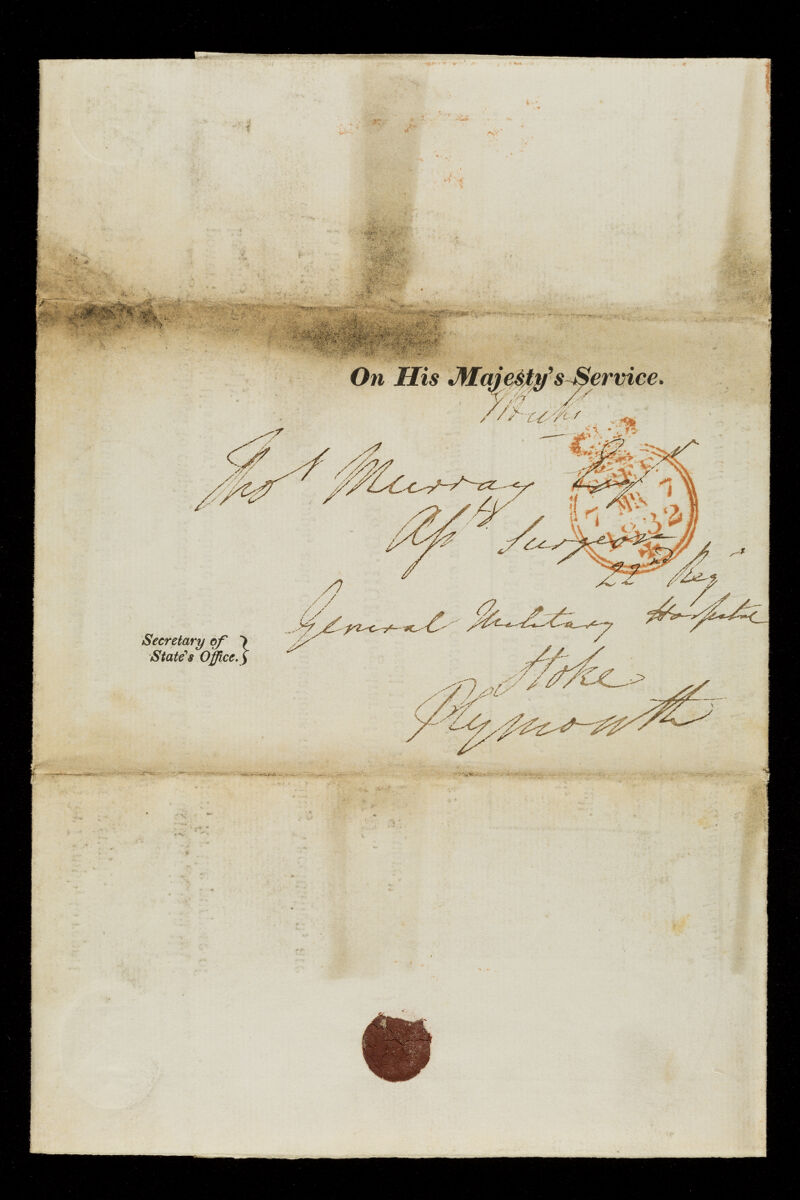 On His Majesty's Service.
Thos Murray Esqr
Asst Surgeon
22d Regt
General Military Hospital
Stoke
Plymouth
Secretary of
State's Office.}
FREE
7 MR 7
1832